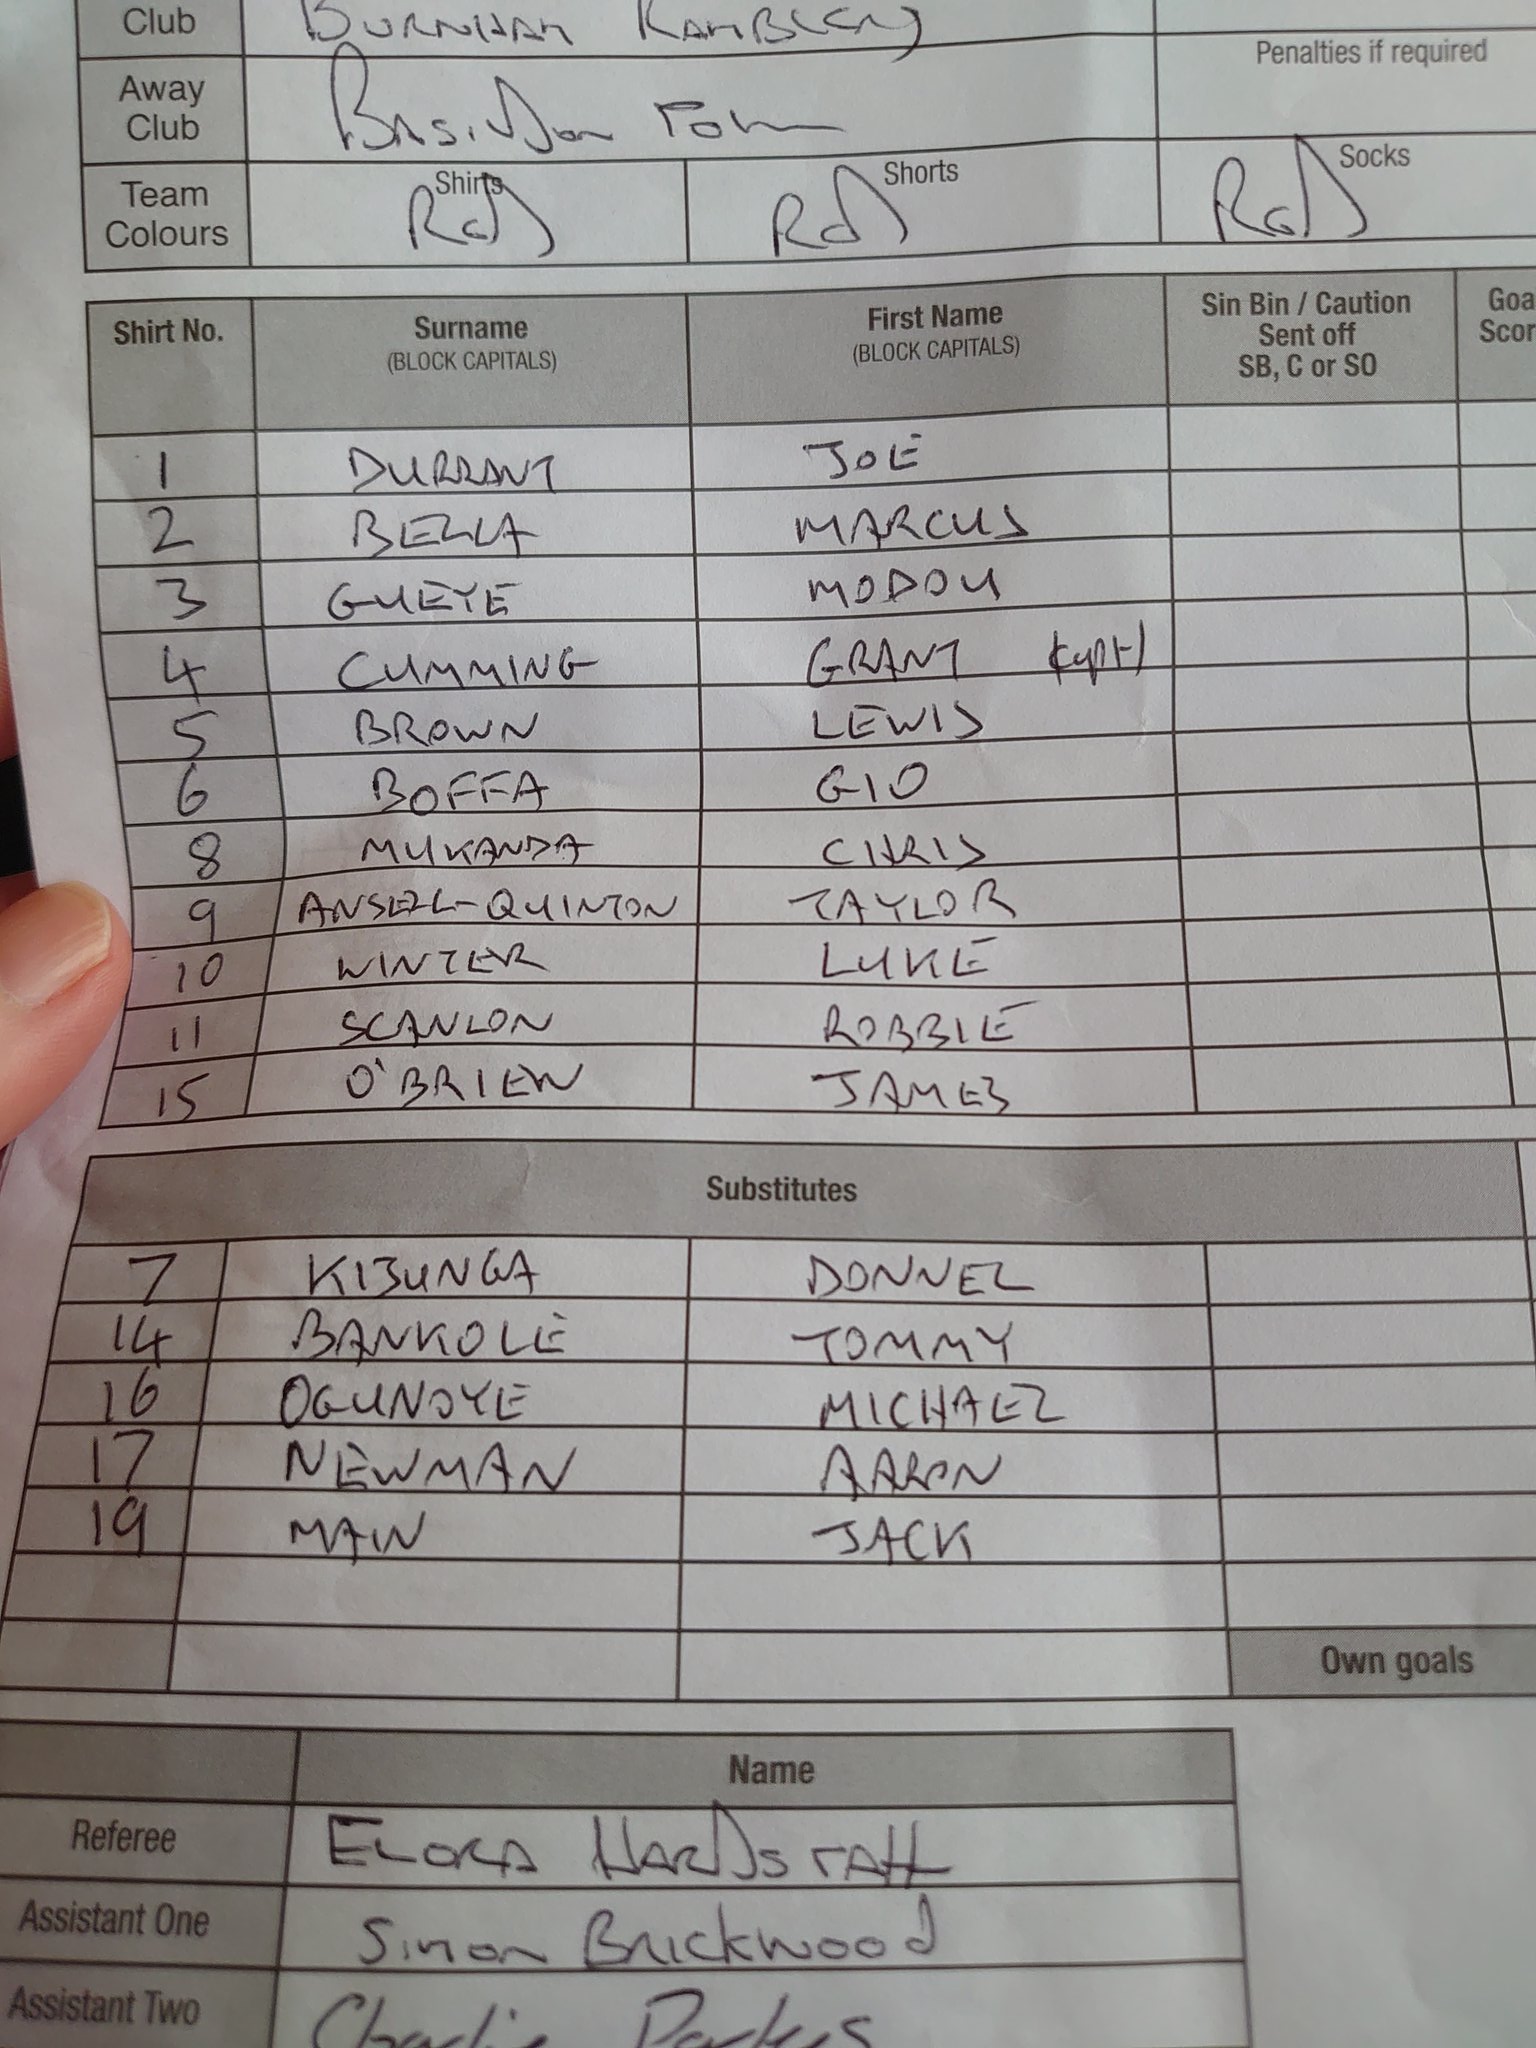 Club BURNHAM RAMBLERS
Penalties if required
Away Club Basildon Town
Team Colours Shirts Red Shorts Red Socks Red
Shirt No. Surname (BLOCK CAPITALS) First Name (BLOCK CAPITALS) Sin Bin / Caution Sent off SB, C or SO
1 DURRANT JOE
2 BELLA MARCUS
3 GUEYE MODOU
4 CUMMING GRANT (capt)
5 BROWN LEWIS
6 BOFFA GIO
8 MUKANDA CHRIS
9 ANSELL-QUINTON TAYLOR
10 WINTER LUKE
11 SCANLON ROBBIE
15 O'BRIEN JAMES
Substitutes
7 KIBUNGA DONNEL
14 BANKOLE TOMMY
16 OGUNOYE MICHAEL
17 NEWMAN AARON
19 MAIN JACK
Own goals
Name
Referee ELORA HARDSTAFF
Assistant One Simon Brickwood
Assistant Two Charlie Parkes